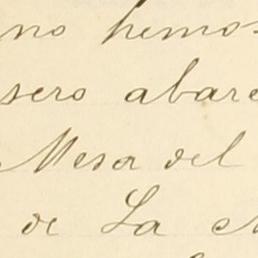 no hemos
sero abare
Mesa del
de La